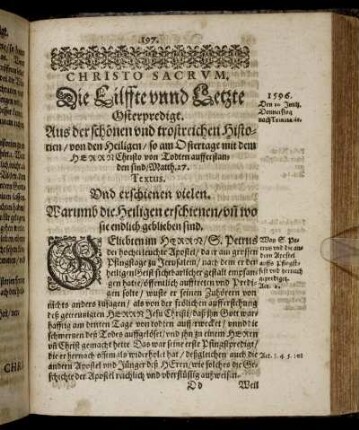 197.
CHRISTO SACRVM,
Die Eilffte vnnd Letzte
Osterpredigt.
Aus der schönen vnd trostreichen Histo-
rien / von den Heiligen / so am Ostertage mit dem
HERRN Christo von Todten aufferstan-
den sind / Matth. 27.
Textus.
Vnd erschienen vielen.
Warumb die Heiligen erschienen / vñ wo
sie endlich geblieben sind.
GEliebten im HERRN / S. Petrus
der hocherleuchte Apostel / da er am grossen
Pfingstage zu Jerusalem / nach dem er den
heiligen Geist sichtbarlicher gestalt empfan-
gen hatte / öffentlich aufftreten vnd Predi-
gen solte / wuste er seinen Zuhörern von
nichts anders zusagen / als von der frölichen aufferstehung
des gecreutzigten HERRN Jesu Christi / daß ihn Gott war-
hafftig am dritten Tage von todten aufferwecket / vnnd die
schmertzen deß Todes auffgelöset / vnd ihn zu einem HErrn
vñ Christ gemacht hette. Das war seine erste Pfingstpredigt /
die er hernach offtmals widerholet hat / deßgleichen auch die
andern Apostel vnd Jünger deß HErrn / wie solches die Ge-
schichte der Apostel reichlich vnd vberflüssig außweisen.
Dd
Weil
1596.
Den 10 Junij,
Donnerstag
nach Trinitatis.
Was S. Pe-
trus vnd die an-
dern Apostel
auffs Pfingst-
fest vnd hernach
geprediget.
Act. 2.